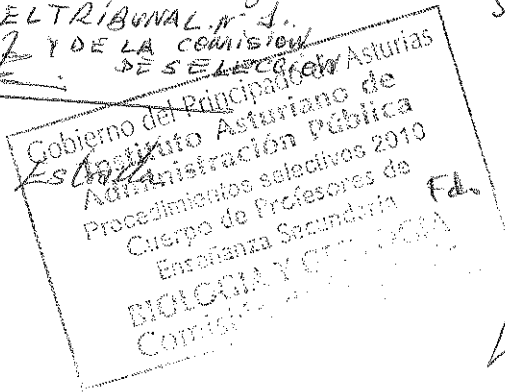 EL TRIBUNAL Nº 1.
Y DE LA COMISION
DE SELECCION
Gobierno del Principado de Asturias
Instituto Asturiano de
Administración Pública
Procedimientos selectivos 2010
Cuerpo de Profesores de
Enseñanza Secundaria
Fd.
BIOLOGIA Y